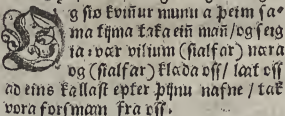 Og sio kvinur munu a þeim sa=
ma tijma taka eiñ mañ/ og seig
ia: vær vilium (sialfar) næra
og (sialfar) klæda oss/ laat oss
ad eins kallast epter þijnu nafne/ tak
vora forsmæn fra oss.